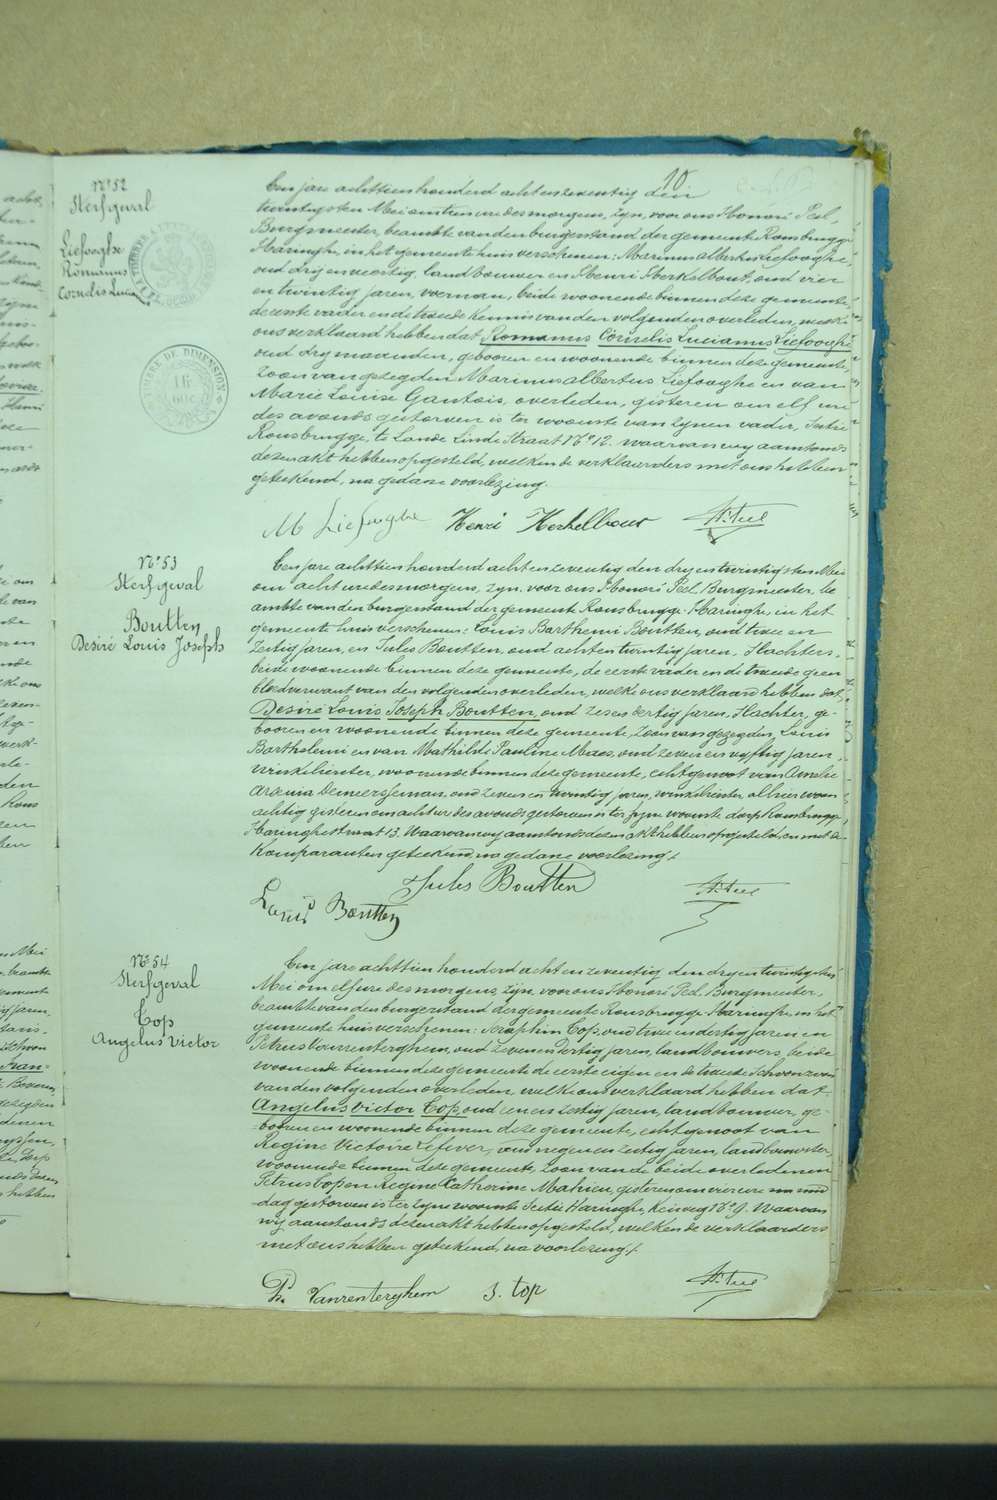 10
N° 52
Sterfgeval
Liefooghe
Romanus
Cornelis Lucian
Een jare achttien honderd acht en zeventig den
twintigsten Mei om tien ure des morgens, zyn, voor ons Honoré Peel,
Burgmeester, beambte van den burgerstand der gemeente Rousbrugge
Haringhe, in het gemeente huis verschenen: Marinus Albertus Liefooghe,
oud dry en veertig, landbouwer en Henri Herkelbout, oud vier
en twintig jaren, voerman, beide woonende binnen deze gemeente,
de eerste vader en de tweede kennis van den volgenden overleden, welke
ons verklaard hebben dat Romanus Cornelis Lucianus Liefooghe
oud dry maanden, geboren en woonende binnen deze gemeente,
zoon van gezegden Marinus Albertus Liefooghe en van
Marie Louise Gantois, overleden, gisteren om elf ure
des avonds gestorven is ter woonste van zynen vader, Sectie
Rousbrugge, te Lande Linde Straat N° 12. waarvan wy aanstonds
dezen akt hebben opgesteld, welken de verklaarders met ons hebben
geteekend, na gedane voorlezing.
TIMBRE DE DIMENSION
M Liefooghe Henri Herkelbout H. Peel
N° 53
Sterfgeval
Boutten
Desiré Louis Joseph
Een jare achttien honderd acht en zeventig den dry en twintigsten Mei
om acht ure des morgens, zyn, voor ons Honoré Peel, Burgmeester, be
ambte van den burgerstand der gemeente Rousbrugge-Haringhe, in het
gemeente huis verschenen: Louis Barthemi Boutten, oud twee en
zestig jaren, en Jules Boutten, oud acht en twintig jaren, Slachters,
beide woonende binnen deze gemeente, de eerste vader en de tweede geen
bloedverwant van den volgenden overleden, welke ons verklaard hebben dat,
Desiré Louis Joseph Boutten, oud zes en dertig jaren, Slachter, ge-
booren en woonende binnen deze gemeente, zoon van gezegden Louis
Bartholemi en van Mathilde Pauline Maes, oud zeven en vyftig jaren,
winkelierster, woonende binnen deze gemeente, echtgenoot van Amelie
en twintig jaren, winkelierster, alhier woon
achtig gisteren om acht ure des avonds gestorven is ter zyne woonste dorp Rousbrugge
Haringhestraat 13. Waarvan wy aanstonds dezen akt hebben opgesteld, en met de
Komparanten geteekend, na gedane voorlezing./.
Jules Boutten
Louis Boutten
H. Peel
N° 54
Sterfgeval
Top
Angelus Victor
Een jare achttien honderd acht en zeventig den dry en twintigsten
Mei om elf ure des morgens, zyn, voor ons Honoré Peel, Burgmeester,
beambte van den burgerstand der gemeente Rousbrugge Haringhe, in het
gemeente huis verschenen: Seraphin Top, oud twee en dertig jaren en
Petrus Vanrenterghem, oud zeven en dertig jaren, landbouwers, beide
woonende binnen deze gemeente de eerste eigen en de tweede Schoonzoon
van den volgenden overleden, welke ons verklaard hebben dat
Angelus Victor Top, oud een en zestig jaren, landbouwer, ge-
booren en woonende binnen deze gemeente, echtgenoot van
Regine Victoire Lefever, oud negen en zestig jaren, landbouwster,
woonende binnen deze gemeente, zoon van de beide overledenen
Petrus Top en Regine Catherine Mahieu, gisteren om vier ure na mid
dag gestorven is ter zyne woonste Sectie Haringhe, Keiweg N° 9. Waarvan
wy aanstonds dezen akt hebben opgesteld, welken de verklaarders
met ons hebben geteekend, na voorlezing./.
P. Vanrenterghem S. Top H. Peel